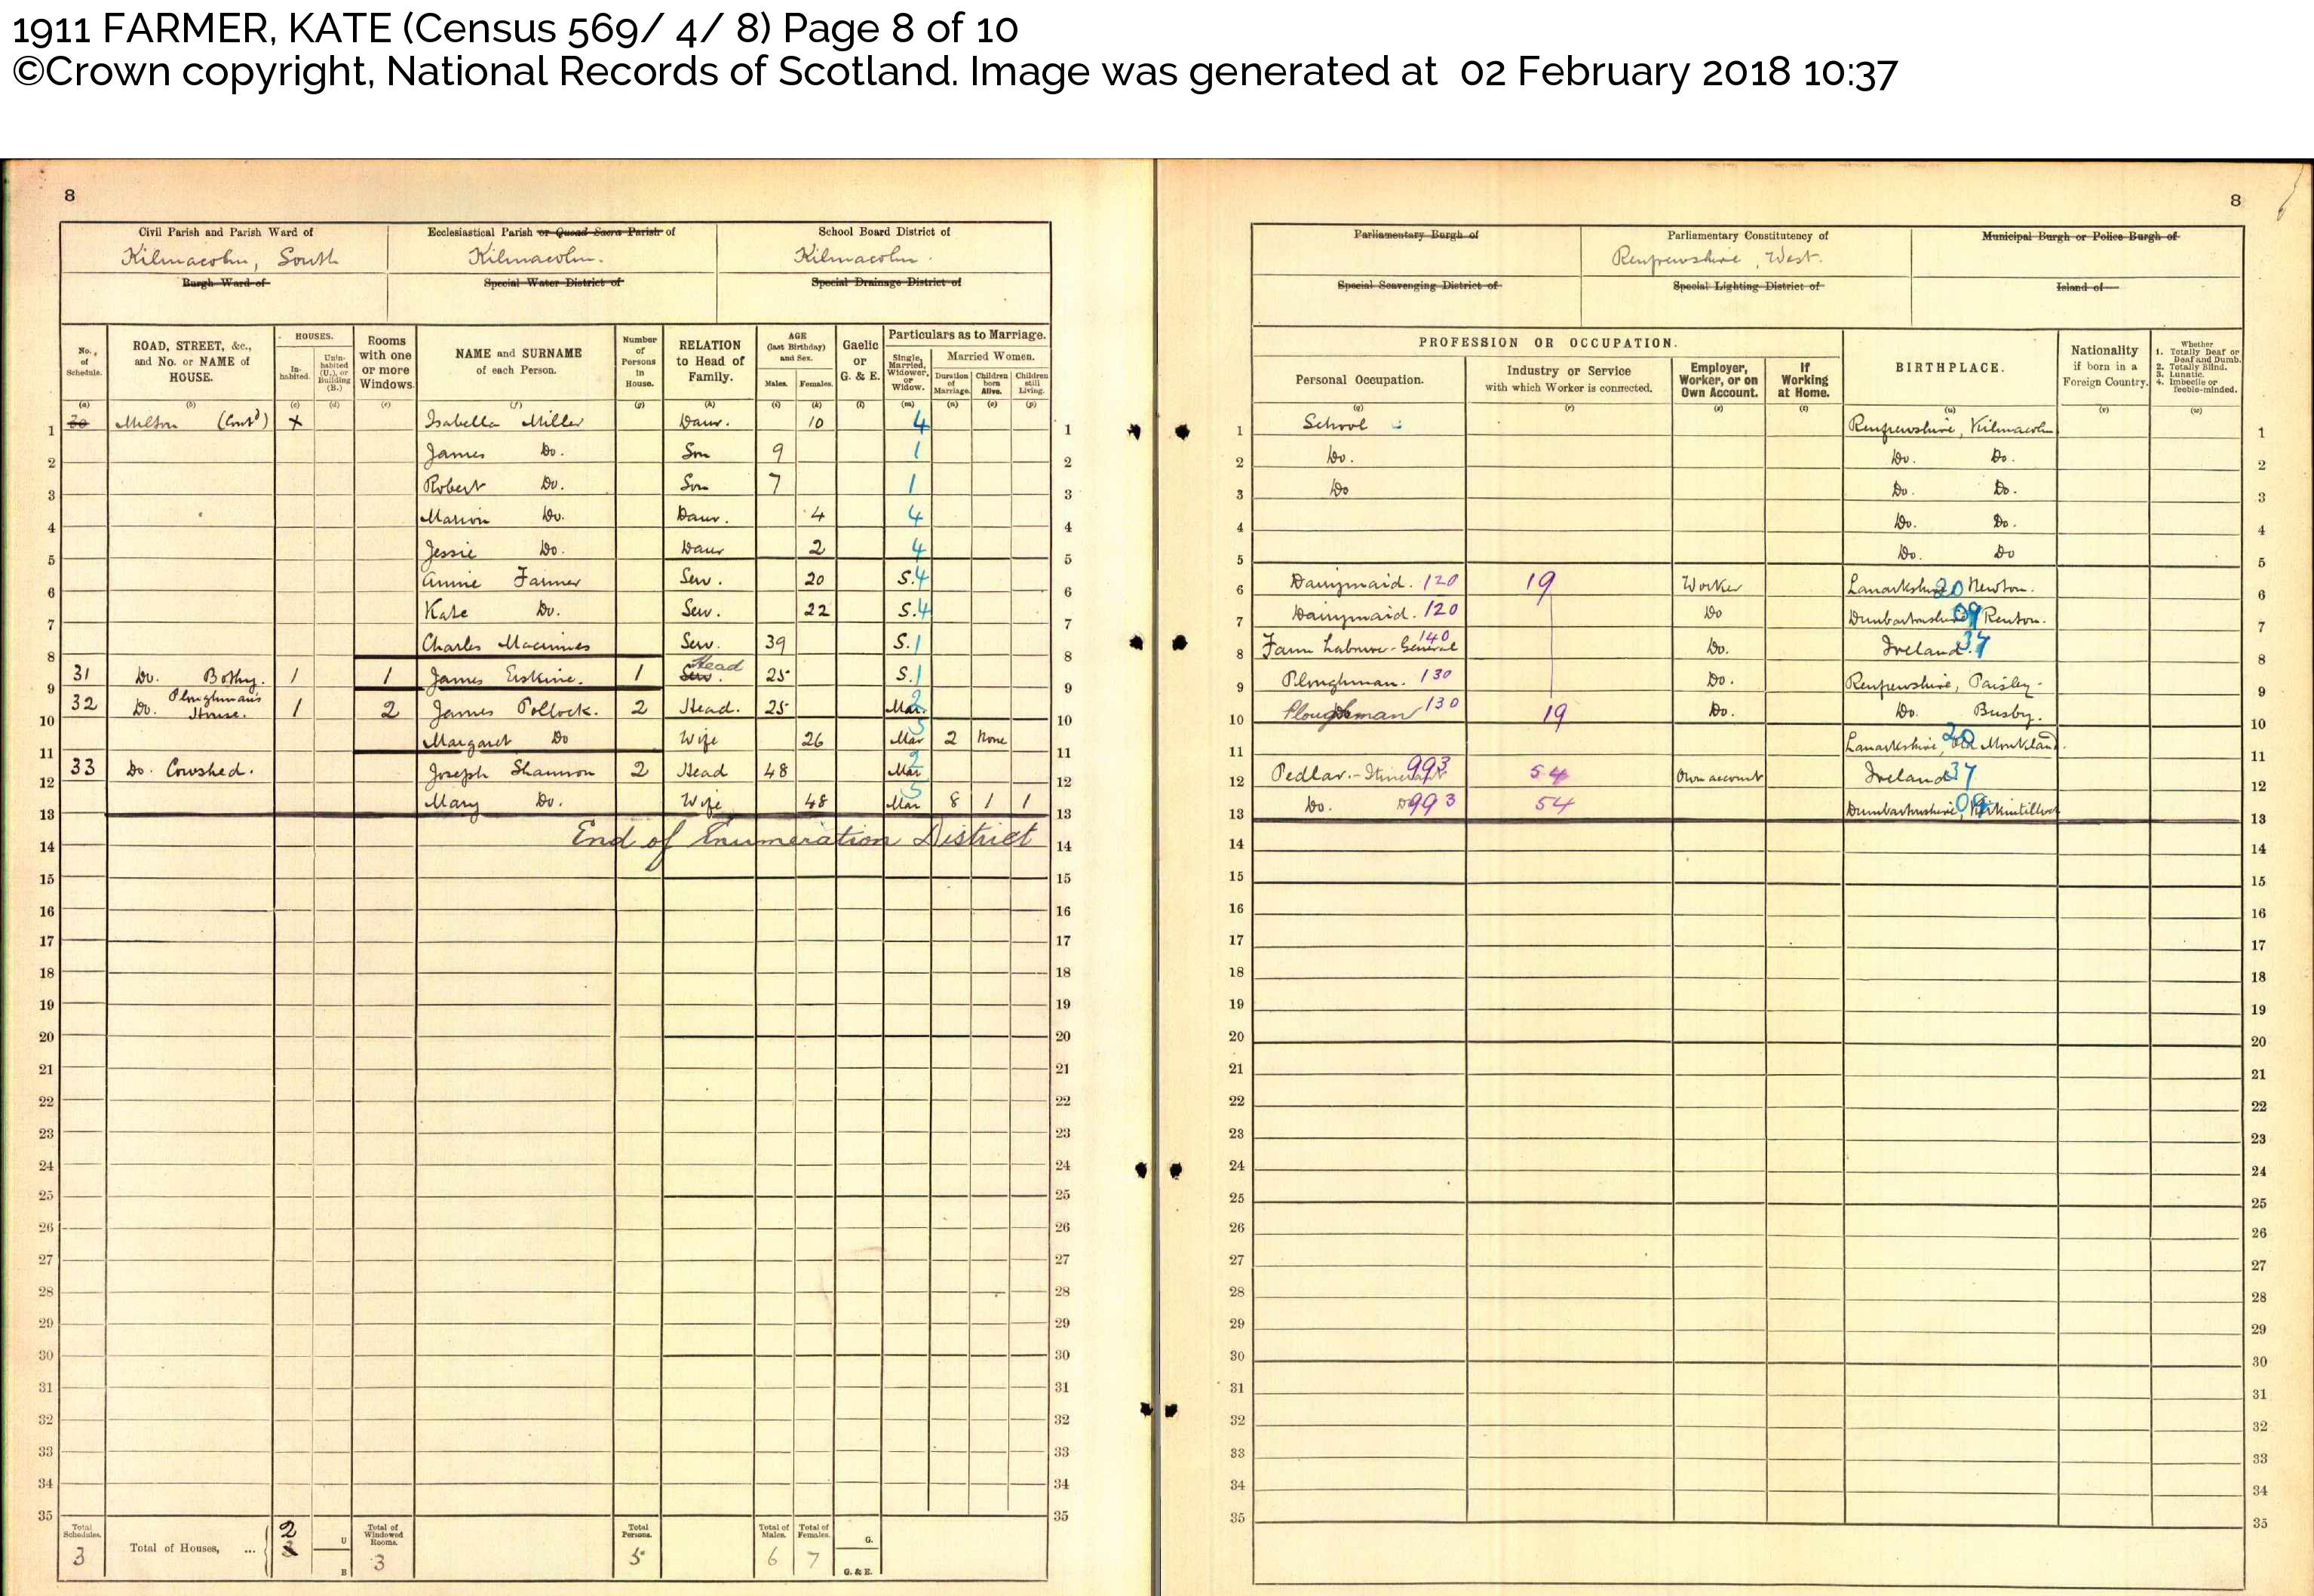 1911 FARMER, KATE (Census 569/ 4/ 8) Page 8 of 10
©Crown copyright, National Records of Scotland. Image was generated at 02 February 2018 10:37
8
8
Civil Parish and Parish Ward of Ecclesiastical Parish or Quoad Sacra Parish of School Board District of
Kilmacolm, South Kilmacolm. Kilmacolm.
Burgh Ward of Special Water District of Special Drainage District of
Parliamentary Burgh of Parliamentary Constitutency of Municipal Burgh or Police Burgh of
Renfrewshire, West.
Special Scavenging District of Special Lighting District of Island of
No. of Schedule. (a)
ROAD, STREET, &c., and No. or NAME of HOUSE. (b)
HOUSES. Inhabited. (c) Uninhabited (U.), or Building (B.) (d)
Rooms with one or more Windows. (e)
NAME and SURNAME of each Person. (f)
Number of Persons in House. (g)
RELATION to Head of Family. (h)
AGE (last Birthday) and Sex. Males. (i) Females. (k)
Gaelic or G. & E. (l)
Particulars as to Marriage.
Single, Married, Widower, or Widow. (m)
Married Women. Duration of Marriage. (n) Children born Alive. (o) Children still Living. (p)
PROFESSION OR OCCUPATION.
Personal Occupation. (q)
Industry or Service with which Worker is connected. (r)
Employer, Worker, or on Own Account. (s)
If Working at Home. (t)
BIRTHPLACE. (u)
Nationality if born in a Foreign Country. (v)
Whether 1. Totally Deaf or Deaf and Dumb. 2. Totally Blind. 3. Lunatic. 4. Imbecile or feeble-minded. (w)
1 30 Milton (Contd) x Isabella Miller Daur. 10 4 1 School Renfrewshire, Kilmacolm 1
2 James Do. Son 9 1 2 Do. Do. Do. 2
3 Robert Do. Son 7 1 3 Do Do. Do. 3
4 Marion Do. Daur. 4 4 4 Do. Do. 4
5 Jessie Do. Daur 2 4 5 Do. Do 5
6 Annie Farmer Serv. 20 S. 4 6 Dairymaid. 120 19 Worker Lanarkshire 20 Newton. 6
7 Kate Do. Serv. 22 S. 4 7 Dairymaid. 120 Do Dumbartonshire 09 Renton. 7
8 Charles Macinnes Serv. 39 S. 1 8 Farm Labourer - General 140 Do. Ireland. 37 8
9 31 Do. Bothy. 1 1 James Erskine. 1 Serv. Head 25 S. 1 9 Ploughman. 130 Do. Renfrewshire, Paisley. 9
10 32 Do. Ploughman's House. 1 2 James Pollock. 2 Head. 25 Mar. 2 10 Ploughman 130 19 Do. Do. Busby. 10
11 Margaret Do Wife 26 Mar 5 2 None 11 Lanarkshire, 20 Old Monkland. 11
12 33 Do. Cowshed. Joseph Shannon 2 Head 48 Mar 2 12 Pedlar. - Itinerant 993 54 Own account Ireland 37 12
13 Mary Do. Wife 48 Mar 5 8 1 1 13 Do. Do 993 54 Dumbartonshire, 09 Kirkintilloch 13
End of Enumeration District
14 14 14 14
15 15 15 15
16 16 16 16
17 17 17 17
18 18 18 18
19 19 19 19
20 20 20 20
21 21 21 21
22 22 22 22
23 23 23 23
24 24 24 24
25 25 25 25
26 26 26 26
27 27 27 27
28 28 28 28
29 29 29 29
30 30 30 30
31 31 31 31
32 32 32 32
33 33 33 33
34 34 34 34
35 35 35 35
Total Schedules. 3 Total of Houses, ... 2 3 U B Total of Windowed Rooms. 3 Total Persons. 5 Total of Males. 6 Total of Females. 7 G. G. & E.